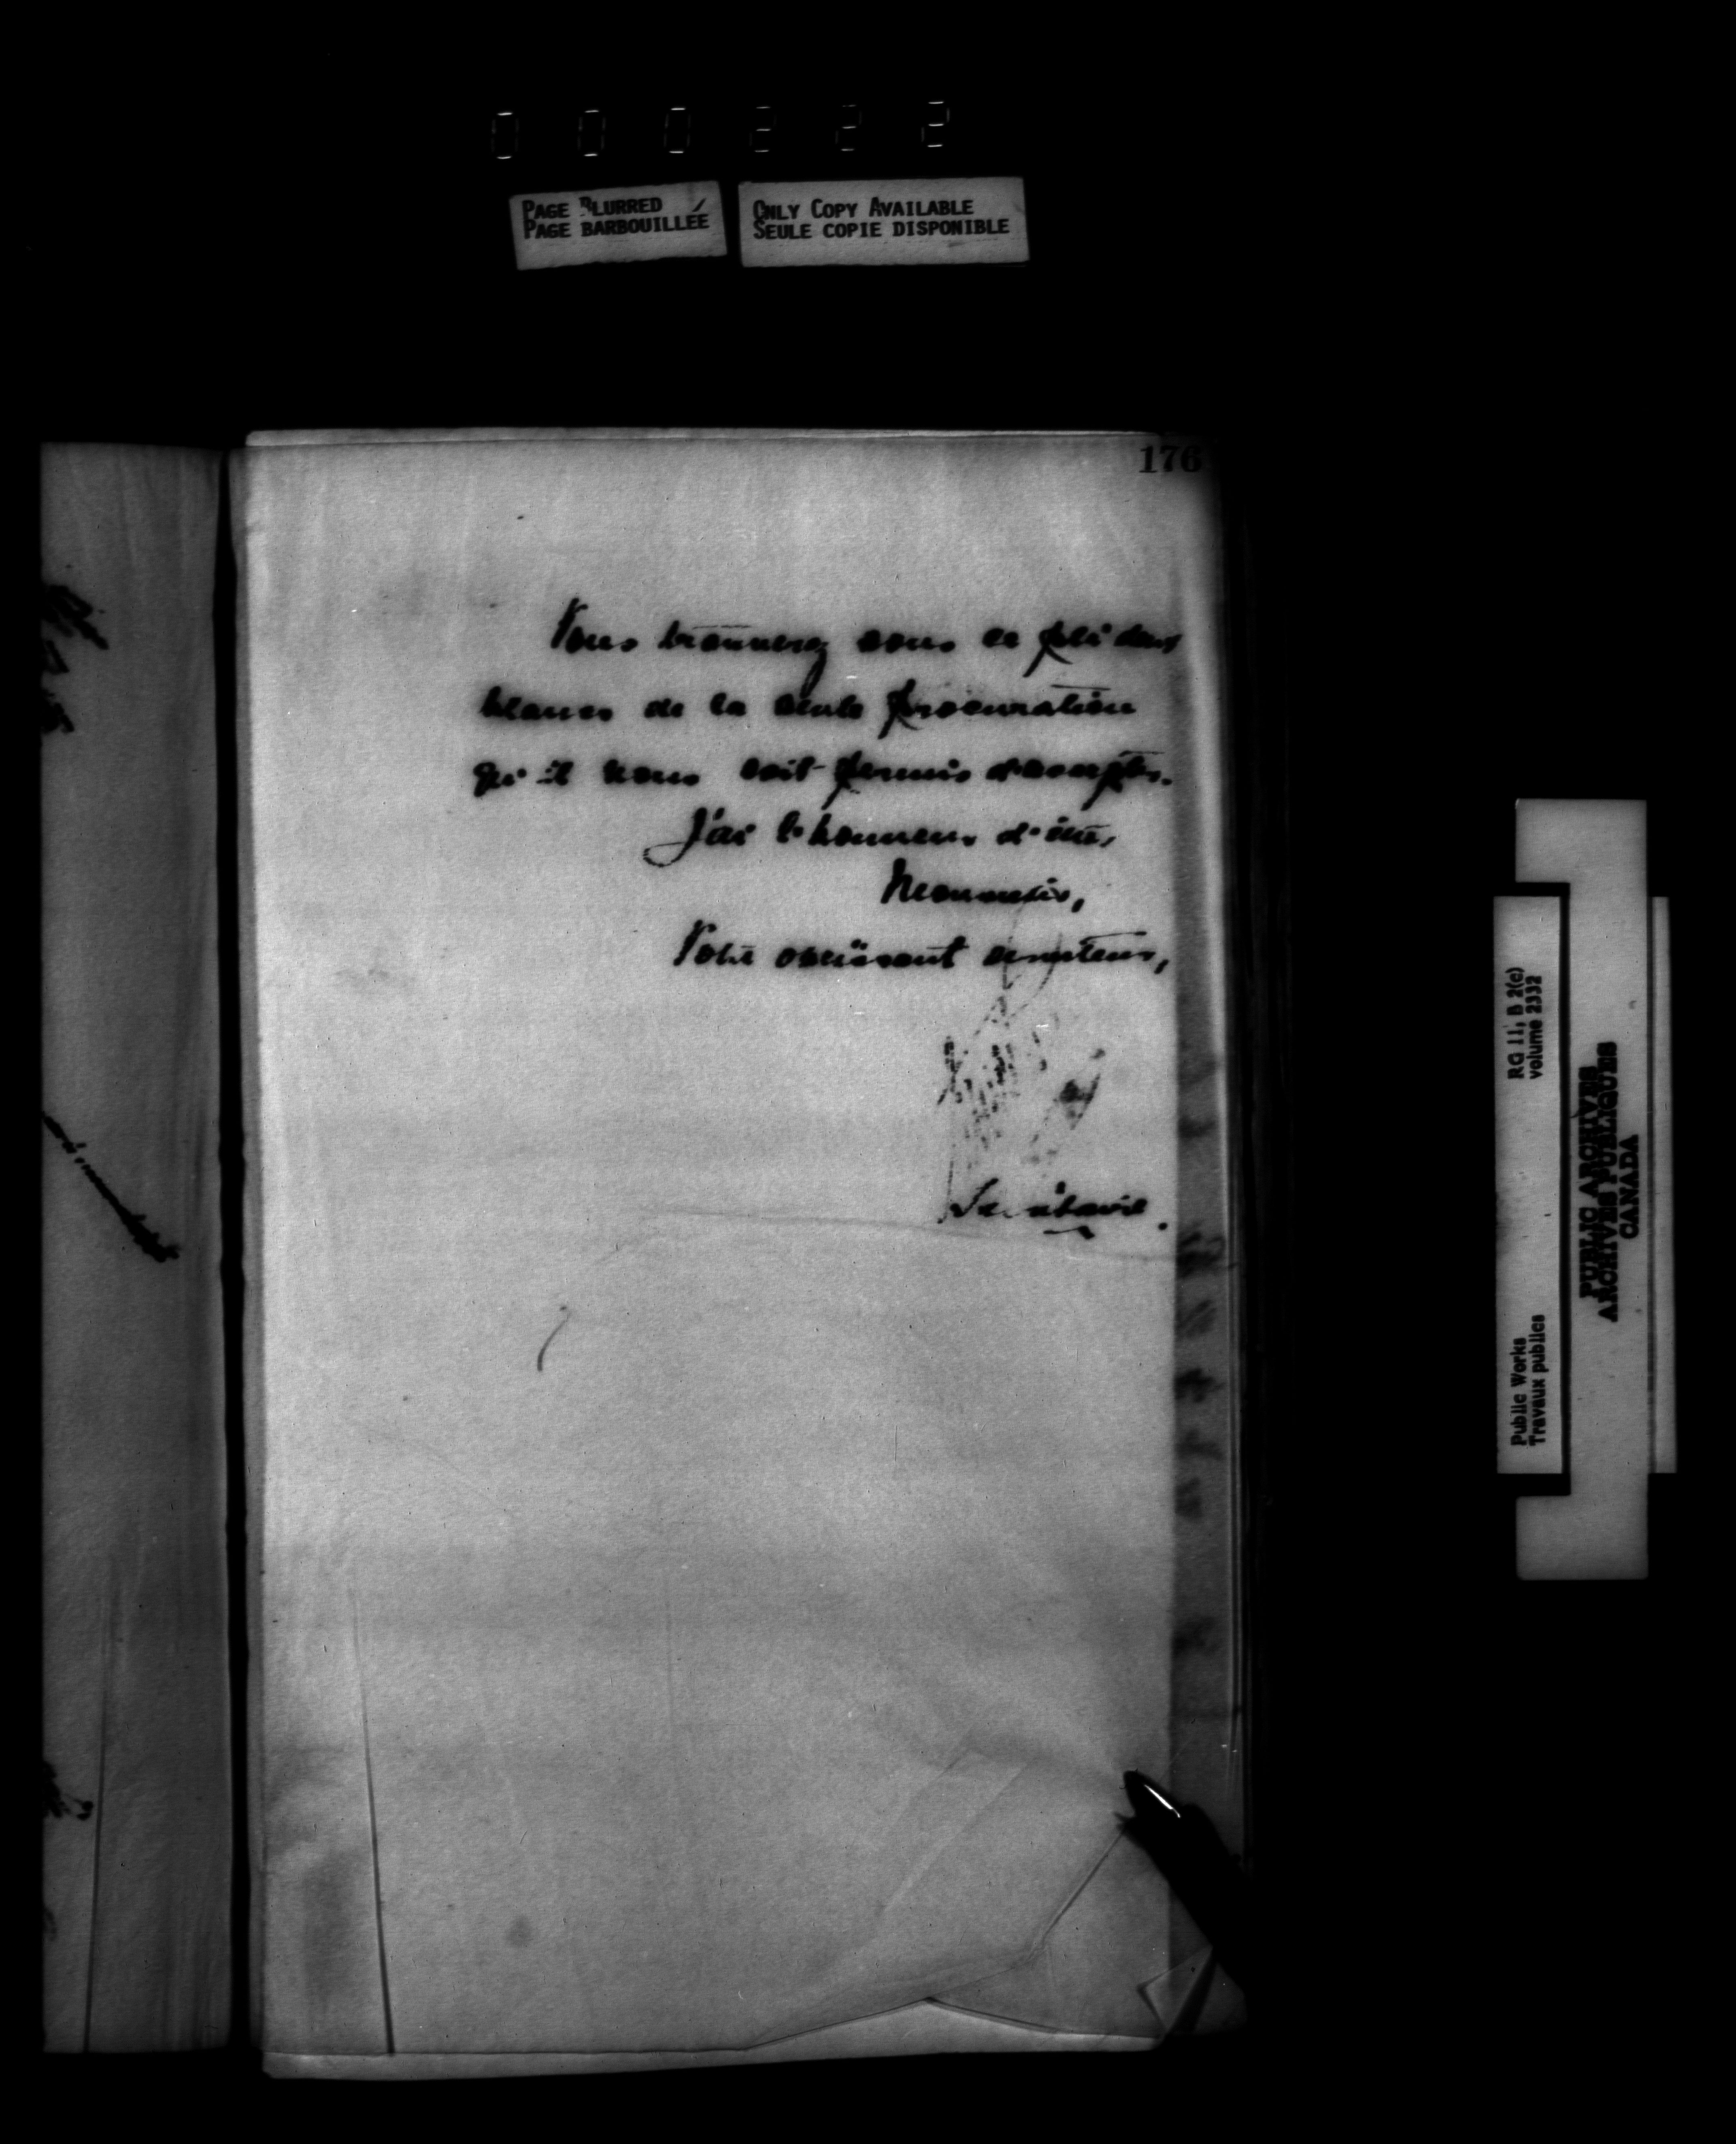 000222
PAGE BLURRED
PAGE BARBOUILLÉE
ONLY COPY AVAILABLE
SEULE COPIE DISPONIBLE
176
Vous trouverez sous ce pli deux
blancs de la seule procuration
qu'il nous soit permis d'accepter.
J'ai l'honneur d'être,
Messieurs,
Votre obéissant serviteur,
Secrétaire.
RG 11, B 2(c)
volume 2332
Public Works
Travaux publics
PUBLIC ARCHIVES
ARCHIVES PUBLIQUES
CANADA